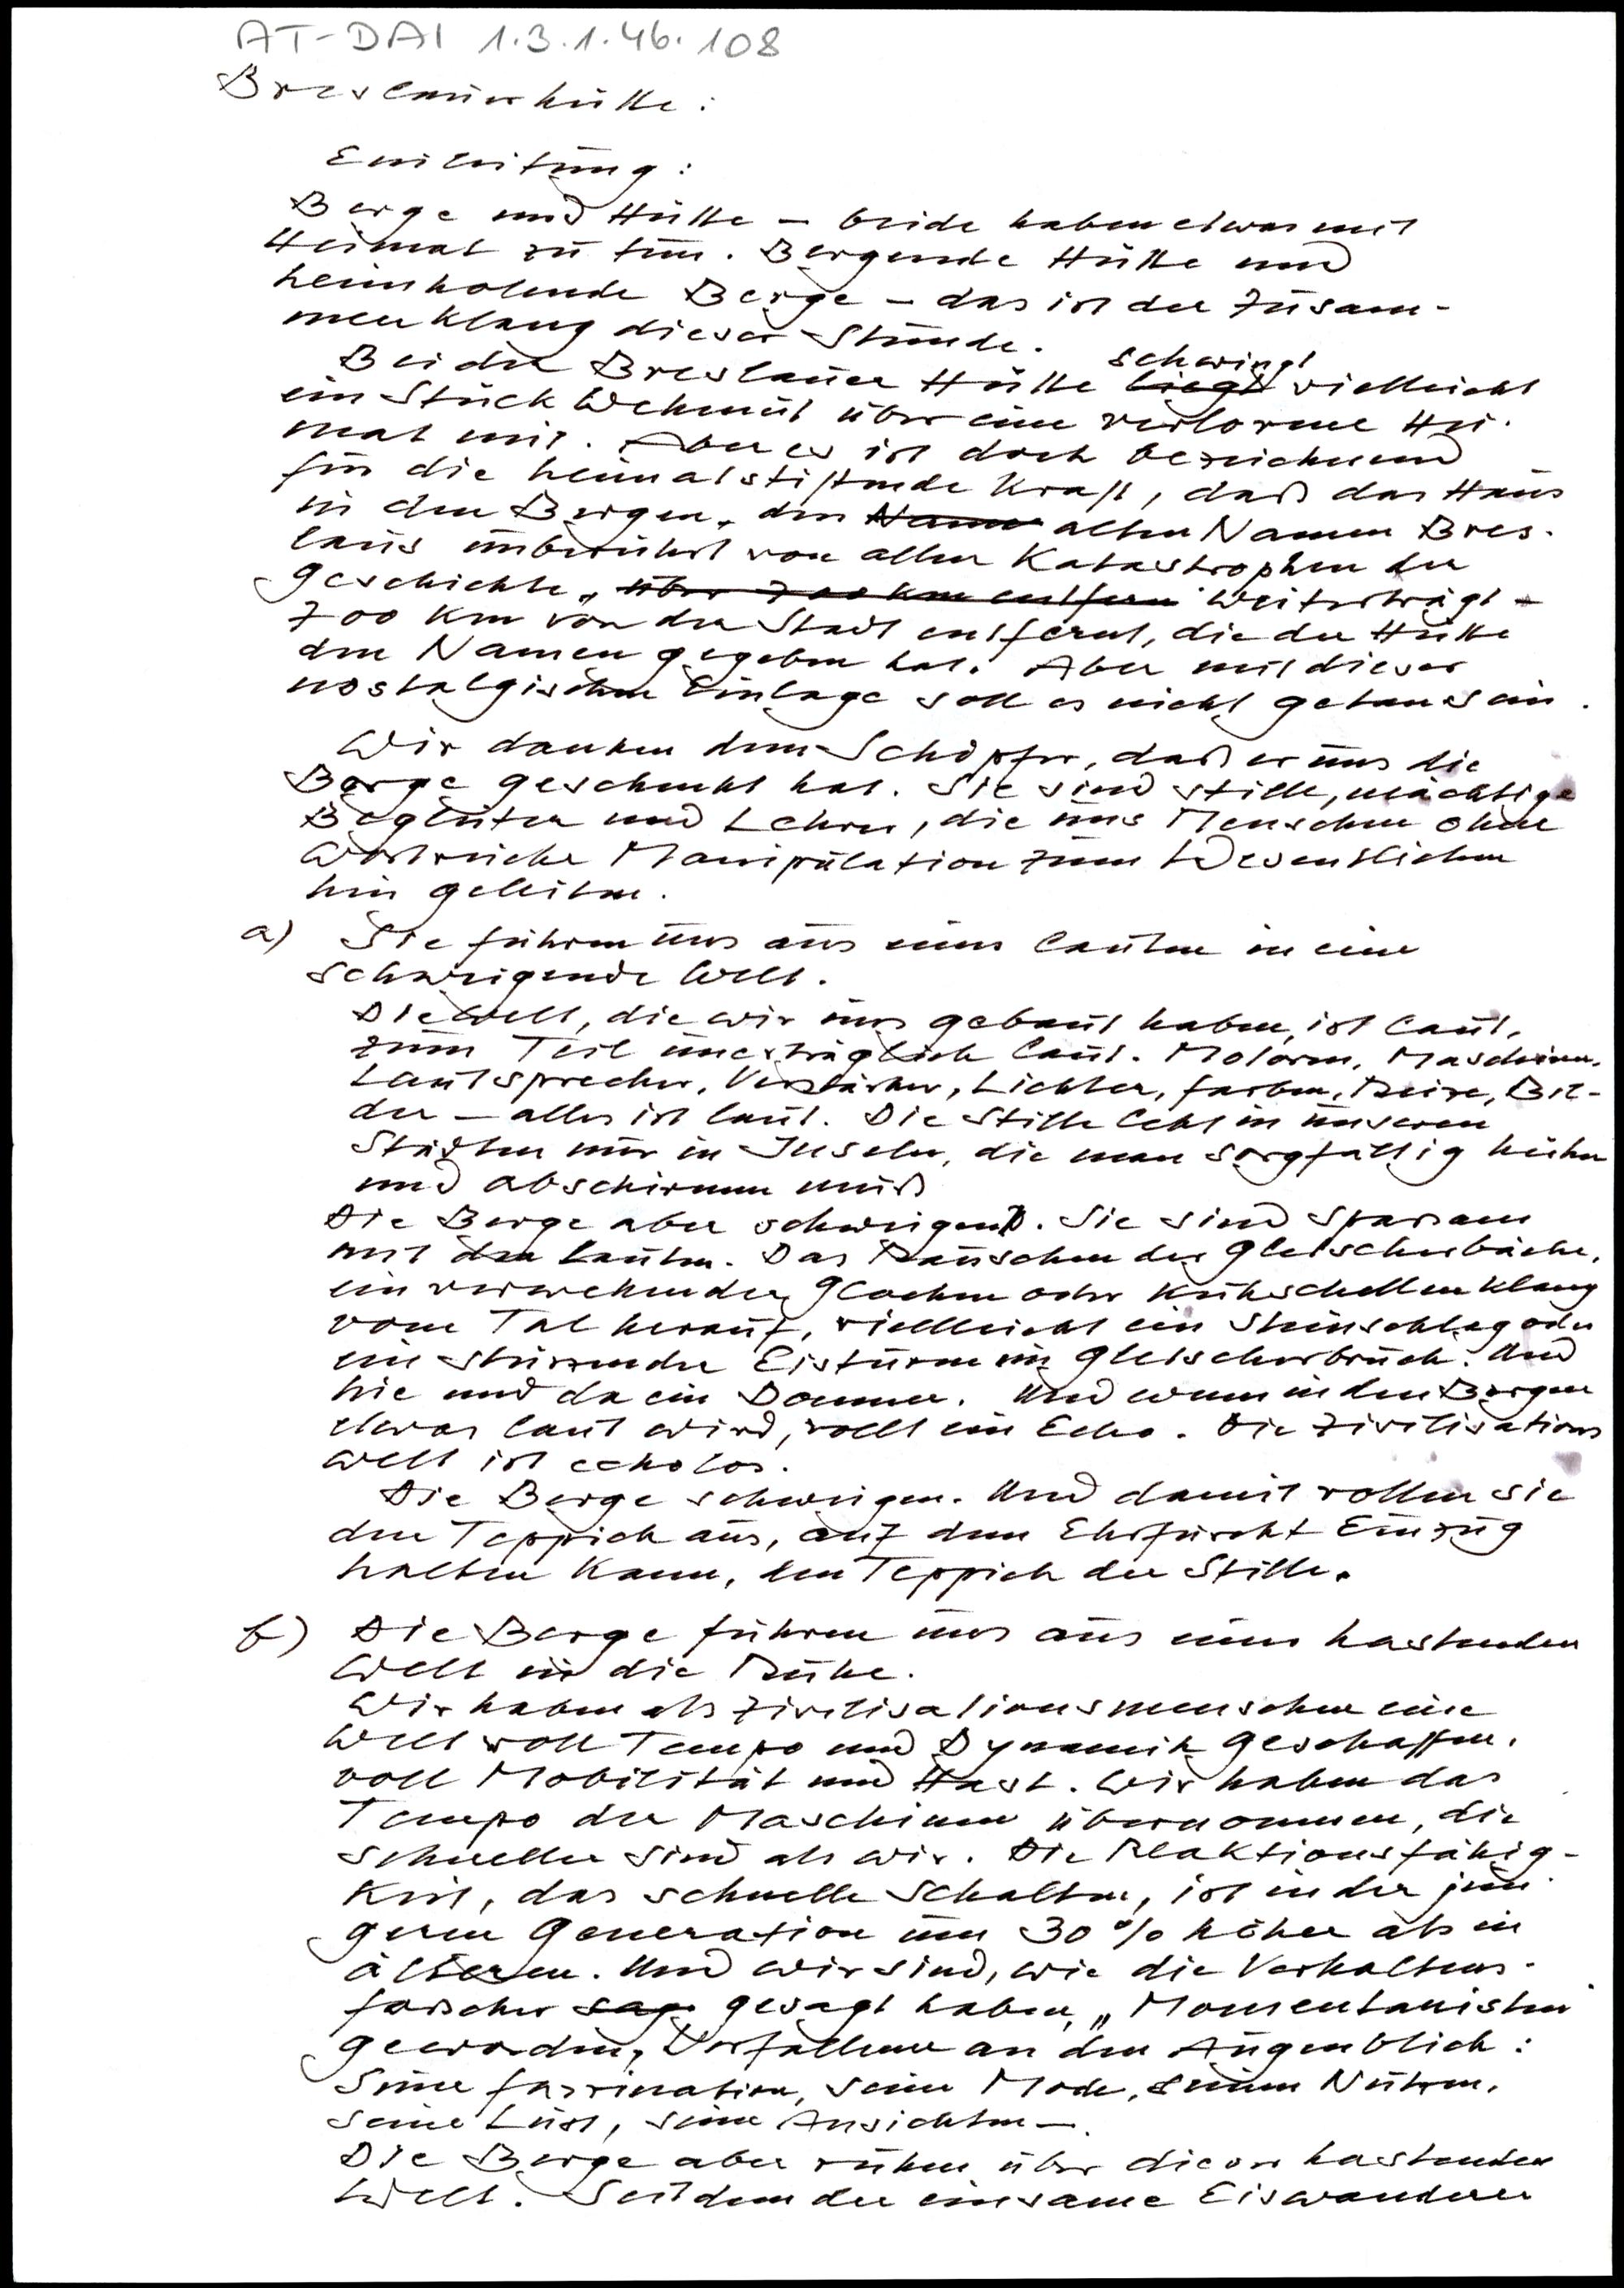 AT-DAI 1.3.1.46.108
Breslauerhütte:
Einleitung:
Berge und Hütte – beide haben etwas mit
Heimat zu tun. Bergende Hütte und
heimholende Berge – das ist der Zusam-
menklang dieser Stunde.
schwingt
Bei der Breslauer Hütte liegt vielleicht
ein Stück Wehmut über eine verlorene Hei-
mat mit. Aber es ist doch bezeichnend
für die heimatstiftende Kraft, daß das Haus
in den Bergen, den Namen alten Namen Bres-
laus unberührt von allen Katastrophen der
Geschichte, über 700 km entfernt weiterträgt –
700 km von der Stadt entfernt, die der Hütte
den Namen gegeben hat. Aber mit dieser
nostalgischen Einlage soll es nicht getan sein.
Wir danken dem Schöpfer, daß er uns die
Berge geschenkt hat. Sie sind stille, mächtige
Begleiter und Lehrer, die uns Menschen ohne
wortreiche Manipulation zum Wesentlichen
hin geleiten.
a) Sie führen uns aus einer lauten in eine
schweigende Welt.
Die Welt, die wir uns gebaut haben, ist laut,
zum Teil unerträglich laut. Motoren, Maschinen,
Lautsprecher, Verstärker, Lichter, Farben, Reize, Bil-
der – alles ist laut. Die Stille lebt in unseren
Städten nur in Inseln, die man sorgfältig hüten
und abschirmen muß
Die Berge aber schweigen. Sie sind sparsam
mit den Lauten. Das Rauschen der Gletscherbäche,
ein verwehender Glocken oder Kuhschellenklang
vom Tal herauf, vielleicht ein Steinschlag oder
ein stürzender Eisturm im Gletscherbruch. Und
hie und da ein Donner. Und wenn in den Bergen
etwas laut wird, rollt ein Echo. Die Zivilisations
welt ist echolos.
Die Berge schweigen. Und damit rollen sie
den Teppich aus, auf dem Ehrfurcht Einzug
halten kann, den Teppich der Stille.
b) Die Berge führen uns aus einer hastenden
Welt in die Ruhe.
Wir haben als Zivilisationsmenschen eine
Welt voll Tempo und Dynamik geschaffen,
voll Mobilität und Hast. Wir haben das
Tempo der Maschinen übernommen, die
schneller sind als wir. Die Reaktionsfähig-
keit, das schnelle Schalten, ist in der jün-
geren Generation um 30 % höher als in
älteren. Und wir sind, wie die Verhaltens-
forscher sag gesagt haben, „Momentanisten"
geworden, Verfallene an den Augenblick:
Seine Faszination, seine Mode, seinen Nutzen,
seine Lust, seine Ansichten –.
Die Berge aber ruhen über dieser hastenden
Welt. Seitdem der einsame Eiswanderer